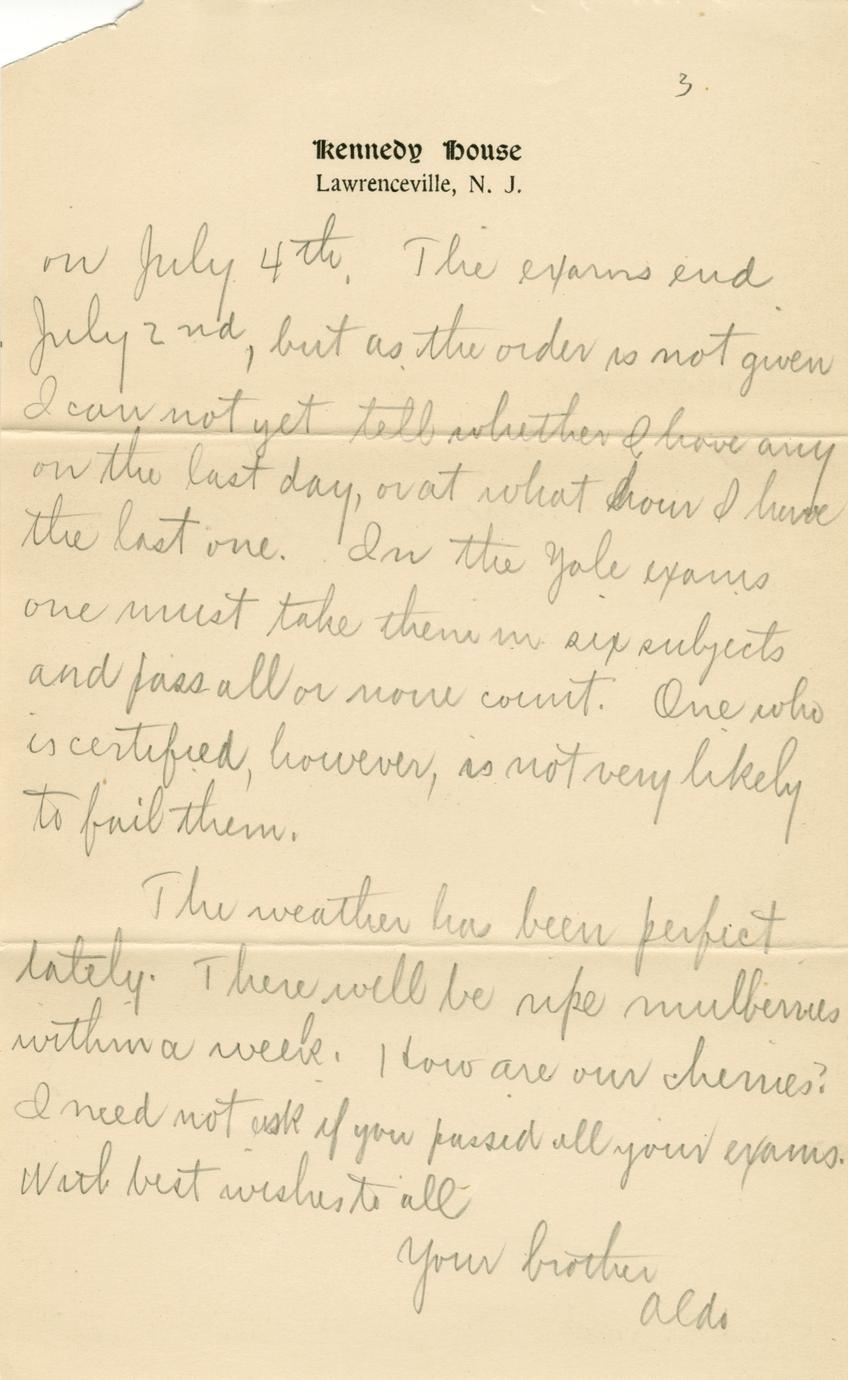 3.
Kennedy House
Lawrenceville, N. J.
on July 4th. The exams end
July 2nd, but as the order is not given
I can not yet tell whether I have any
on the last day, or at what hour I have
the last one. In the Yale exams
one must take them in six subjects
and pass all or none count. One who
is certified, however, is not very likely
to fail them.
The weather has been perfect
lately. There will be ripe mulberries
within a week. How are our cherries?
I need not ask if you passed all your exams.
With best wishes to all
Your brother
Aldo